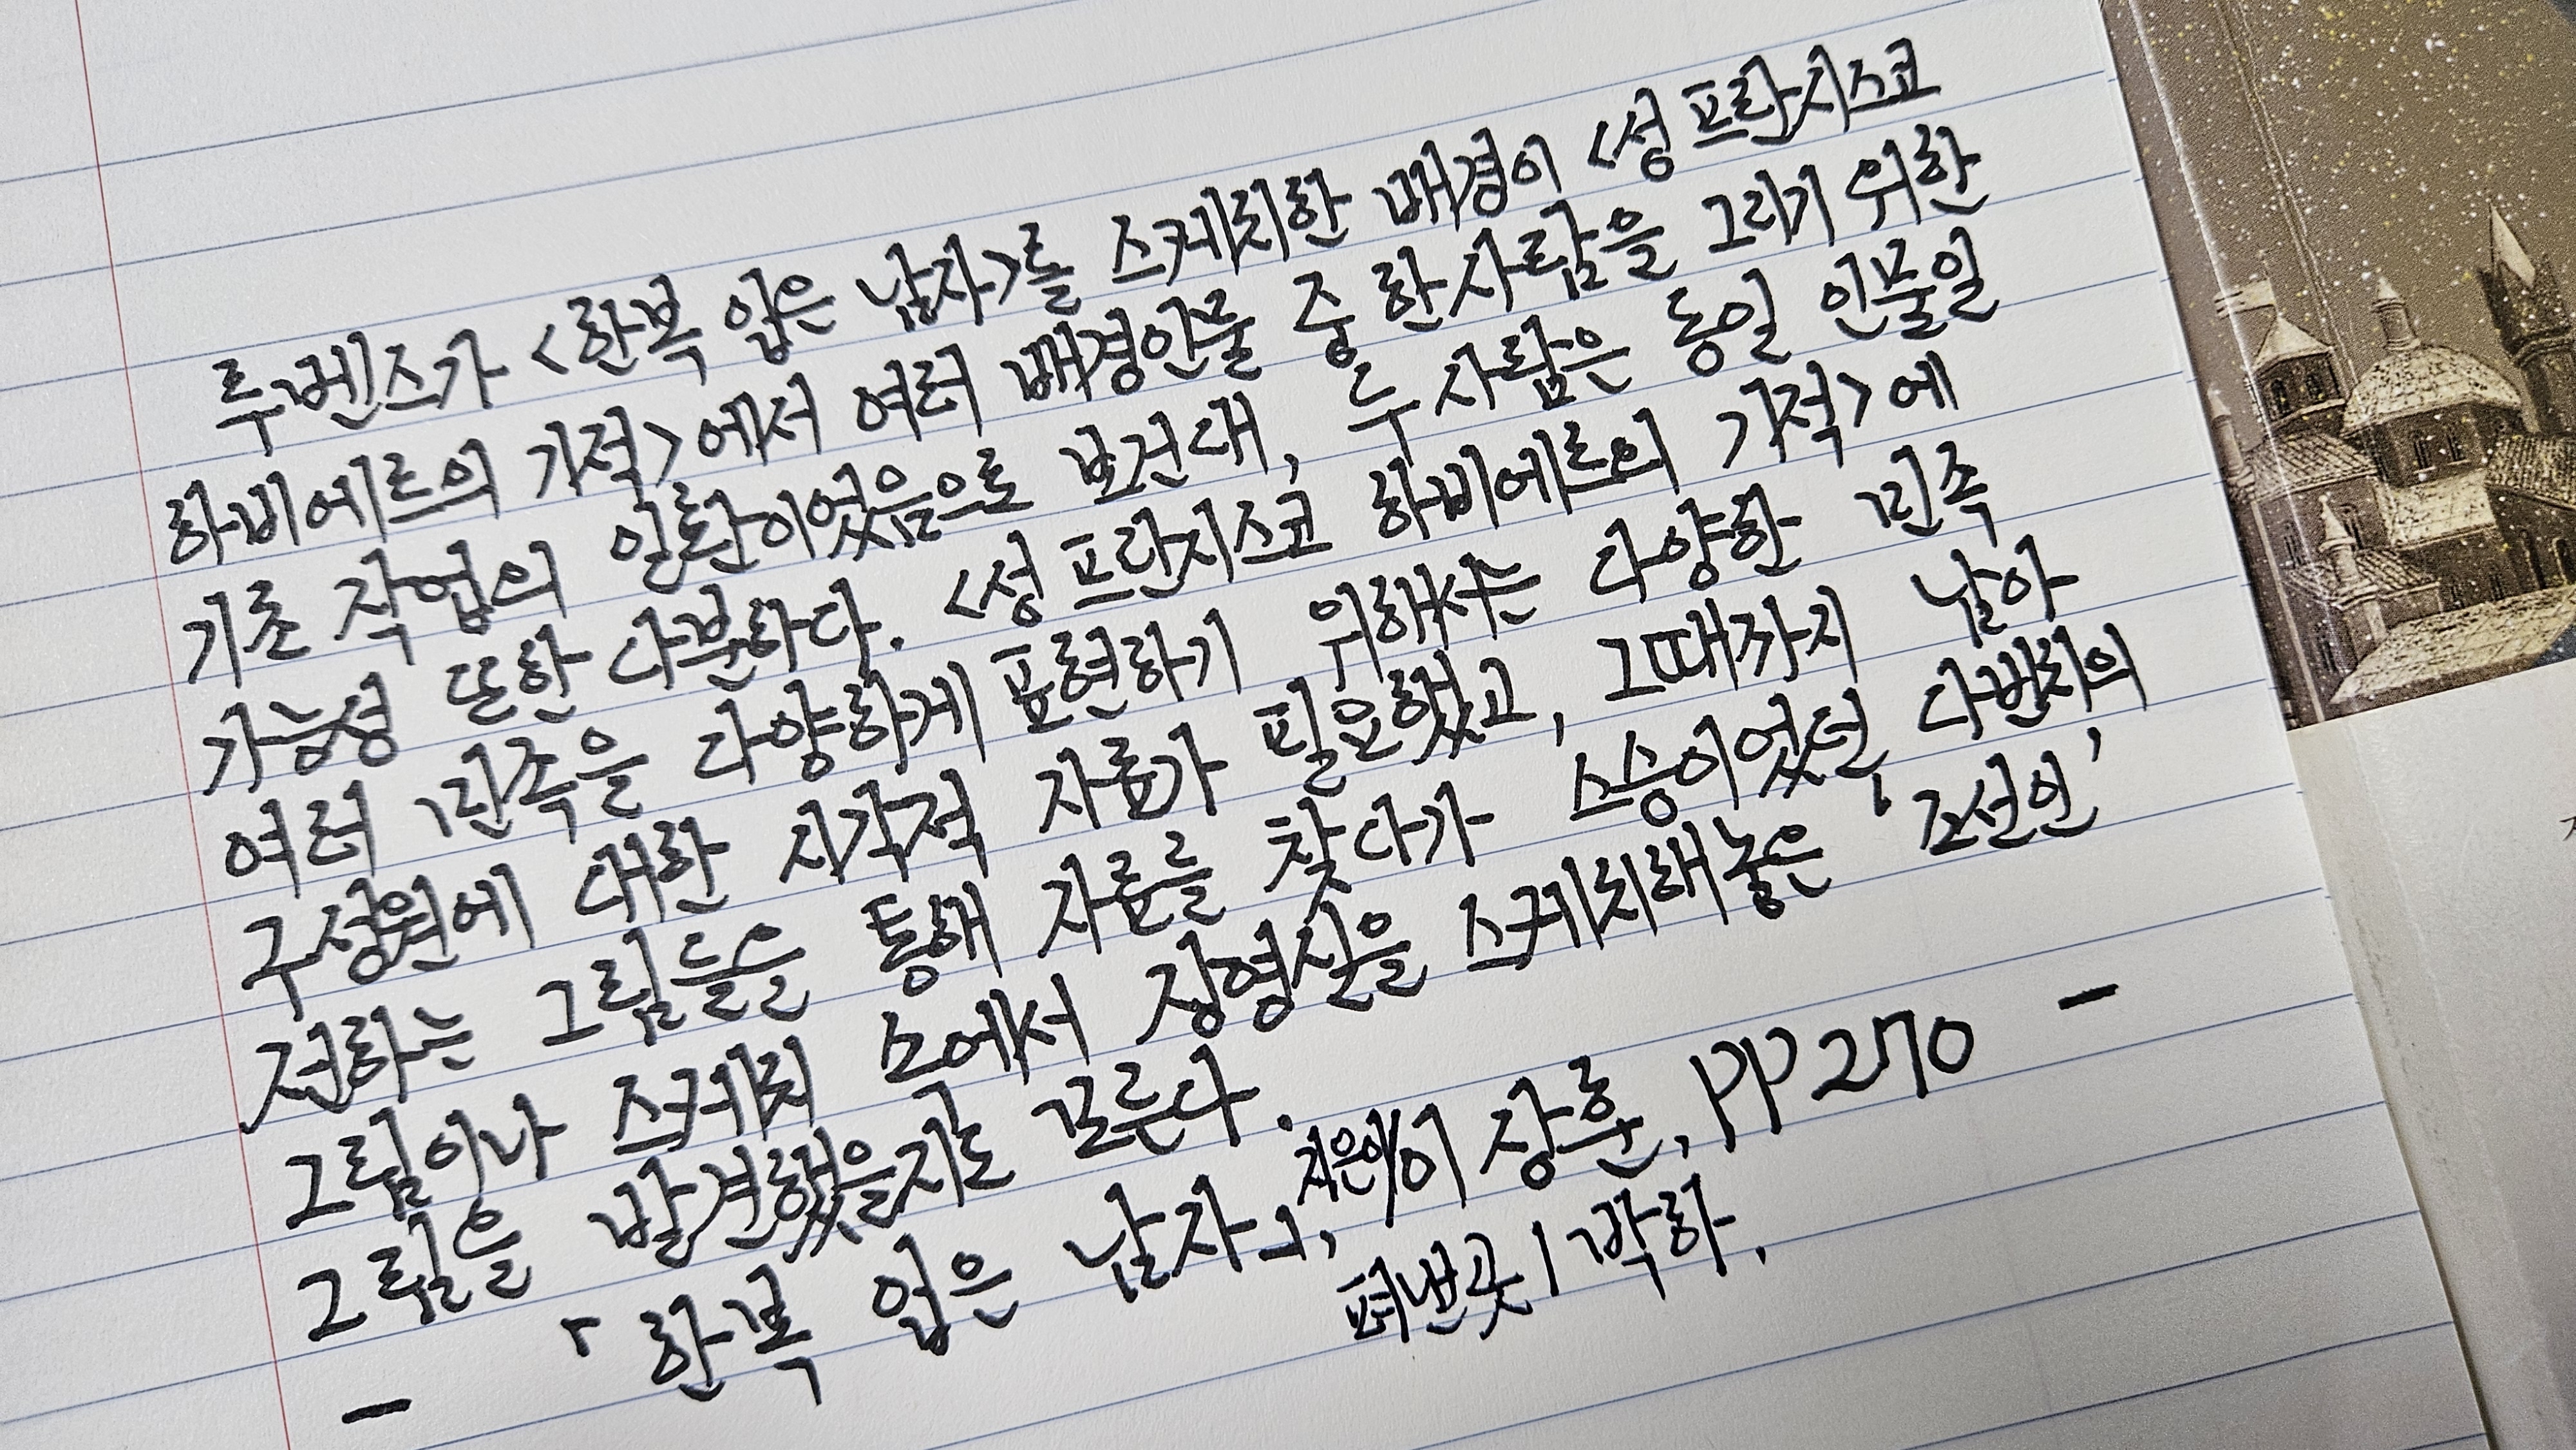 루벤스가 <한복 입은 남자>를 스케치한 배경이 <성 프란시스코
하비에르의 기적>에서 여러 배경인물 중 한사람을 그리기 위한
기초 작업의 일환이었음으로 보건대, 두 사람은 동일 인물일
가능성 또한 다분하다. <성 프란시스코 하비에르의 기적>에
여러 민족을 다양하게 표현하기 위해서는 다양한 민족
구성원에 대한 시각적 자료가 필요했고, 그때까지 남아
전하는 그림들을 통해 자료를 찾다가 스승이었던 다빈치의
그림이나 스케치 속에서 장영실을 스케치해놓은 '조선인'
그림을 발견했을지도 모른다.
- 「한복 입은 남자」, 지은이/이 상훈, PP 270 -
펴낸곳 | 박하.